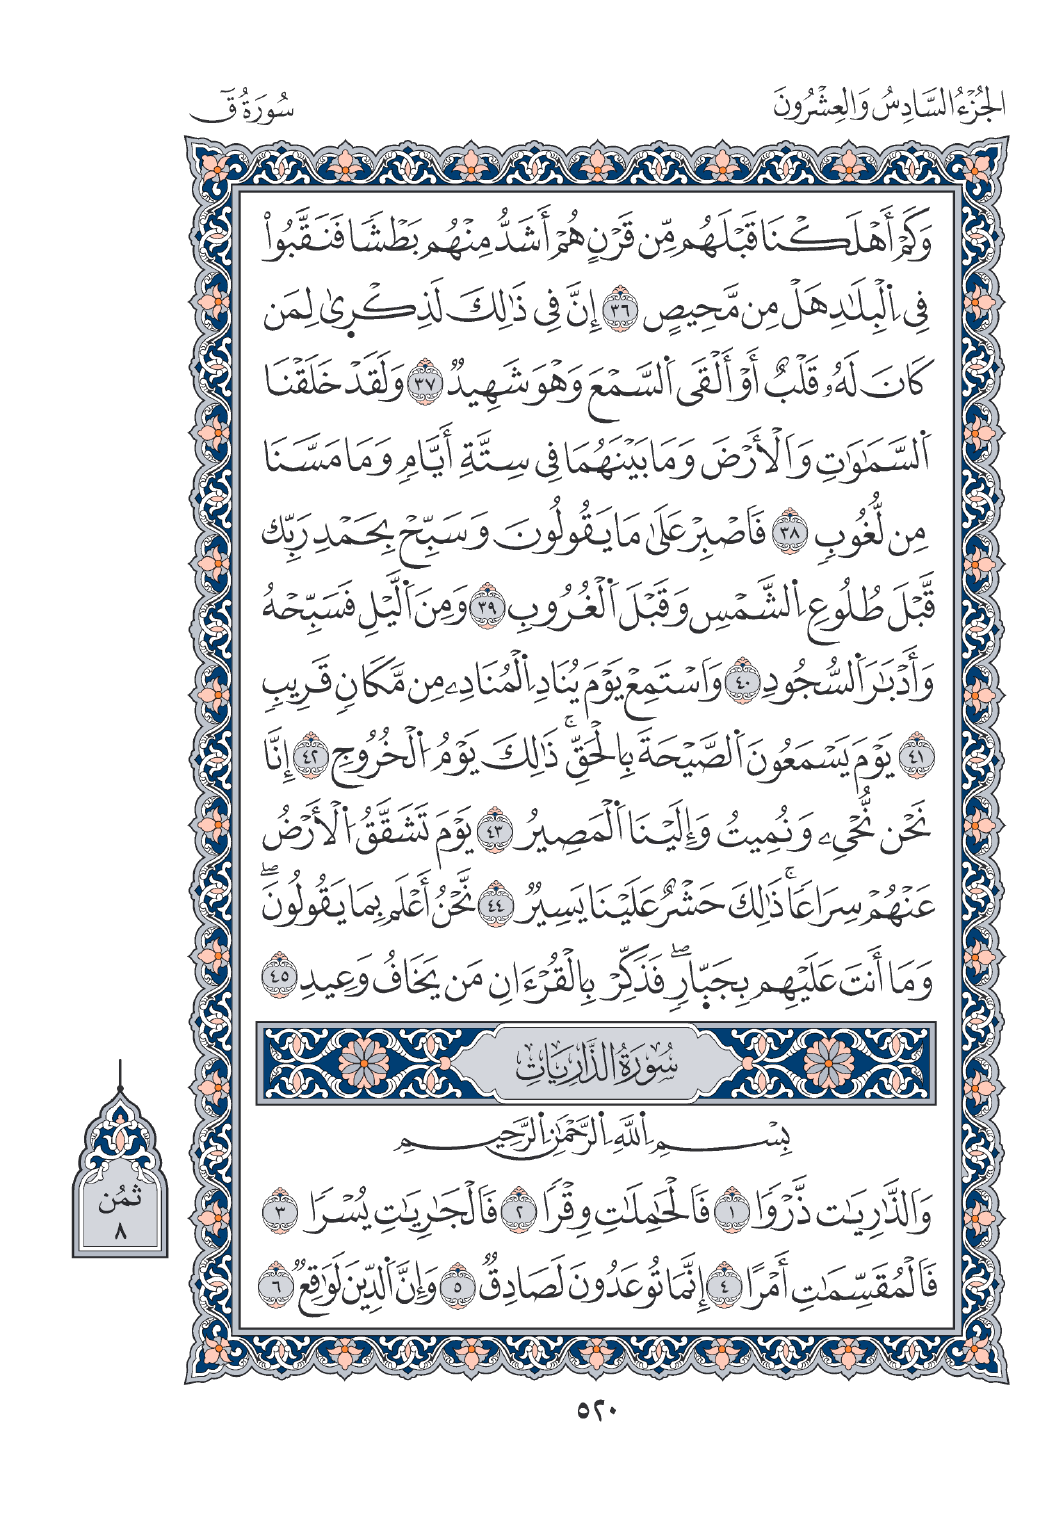 الجُزْءُ السَّادِسُ وَالعِشْرُونَ
سُورَةُ قٓ
وَكَمْ أَهْلَكْنَا قَبْلَهُم مِّن قَرْنٍ هُمْ أَشَدُّ مِنْهُم بَطْشًا فَنَقَّبُواْ
فِى اِ۬لْبِلَٰدِ هَلْ مِن مَّحِيصٍ ٣٦ إِنَّ فِى ذَٰلِكَ لَذِكْر۪ىٰ لِمَن
كَانَ لَهُۥ قَلْبٌ أَوْ أَلْقَى اَ۬لسَّمْعَ وَهْوَ شَهِيدٌ ٣٧ وَلَقَدْ خَلَقْنَا
اَ۬لسَّمَٰوَٰتِ وَالْأَرْضَ وَمَا بَيْنَهُمَا فِى سِتَّةِ أَيَّامٍ وَمَا مَسَّنَا
مِن لُّغُوبٍ ٣٨ فَاصْبِرْ عَلَىٰ مَا يَقُولُونَ وَسَبِّحْ بِحَمْدِ رَبِّك
قَّبْلَ طُلُوعِ اِ۬لشَّمْسِ وَقَبْلَ اَ۬لْغُرُوبِ ٣٩ وَمِنَ اَ۬لَّيْلِ فَسَبِّحْهُ
وَأَدْبَٰرَ اَ۬لسُّجُودِ ٤٠ وَاسْتَمِعْ يَوْمَ يُنَادِ اِ۬لْمُنَادِۦ مِن مَّكَانٍ قَرِيبٍ
٤١ يَوْمَ يَسْمَعُونَ اَ۬لصَّيْحَةَ بِالْحَقِّۚ ذَٰلِكَ يَوْمُ اُ۬لْخُرُوجِ ٤٢ إِنَّا
نَحْن نُّحْيِۦ وَنُمِيتُ وَإِلَيْنَا اَ۬لْمَصِيرُ ٤٣ يَوْمَ تَشَقَّقُ اُ۬لْأَرْضُ
عَنْهُمْ سِرَاعًاۚ ذَٰلِكَ حَشْرٌ عَلَيْنَا يَسِيرٌ ٤٤ نَّحْنُ أَعْلَم بِمَا يَقُولُونَۖ
وَمَا أَنتَ عَلَيْهِم بِجَبّ۪ارٍۖ فَذَكِّرْ بِالْقُرْءَانِ مَن يَخَافُ وَعِيدِ ٤٥
سُورَةُ الذَّارِيَاتِ
بِسْمِ اِ۬للَّهِ اِ۬لرَّحْمَٰنِ اِ۬لرَّحِيمِ
وَالذَّٰرِيَٰت ذَّرْوًا ١ فَالْحَٰمِلَٰتِ وِقْرًا ٢ فَالْجَٰرِيَٰتِ يُسْرًا ٣
فَالْمُقَسِّمَٰتِ أَمْرًا ٤ إِنَّمَا تُوعَدُونَ لَصَادِقٌ ٥ وَإِنَّ اَ۬لدِّينَ لَوَٰقِعٌ ٦
ثمُن
٨
٥٢٠